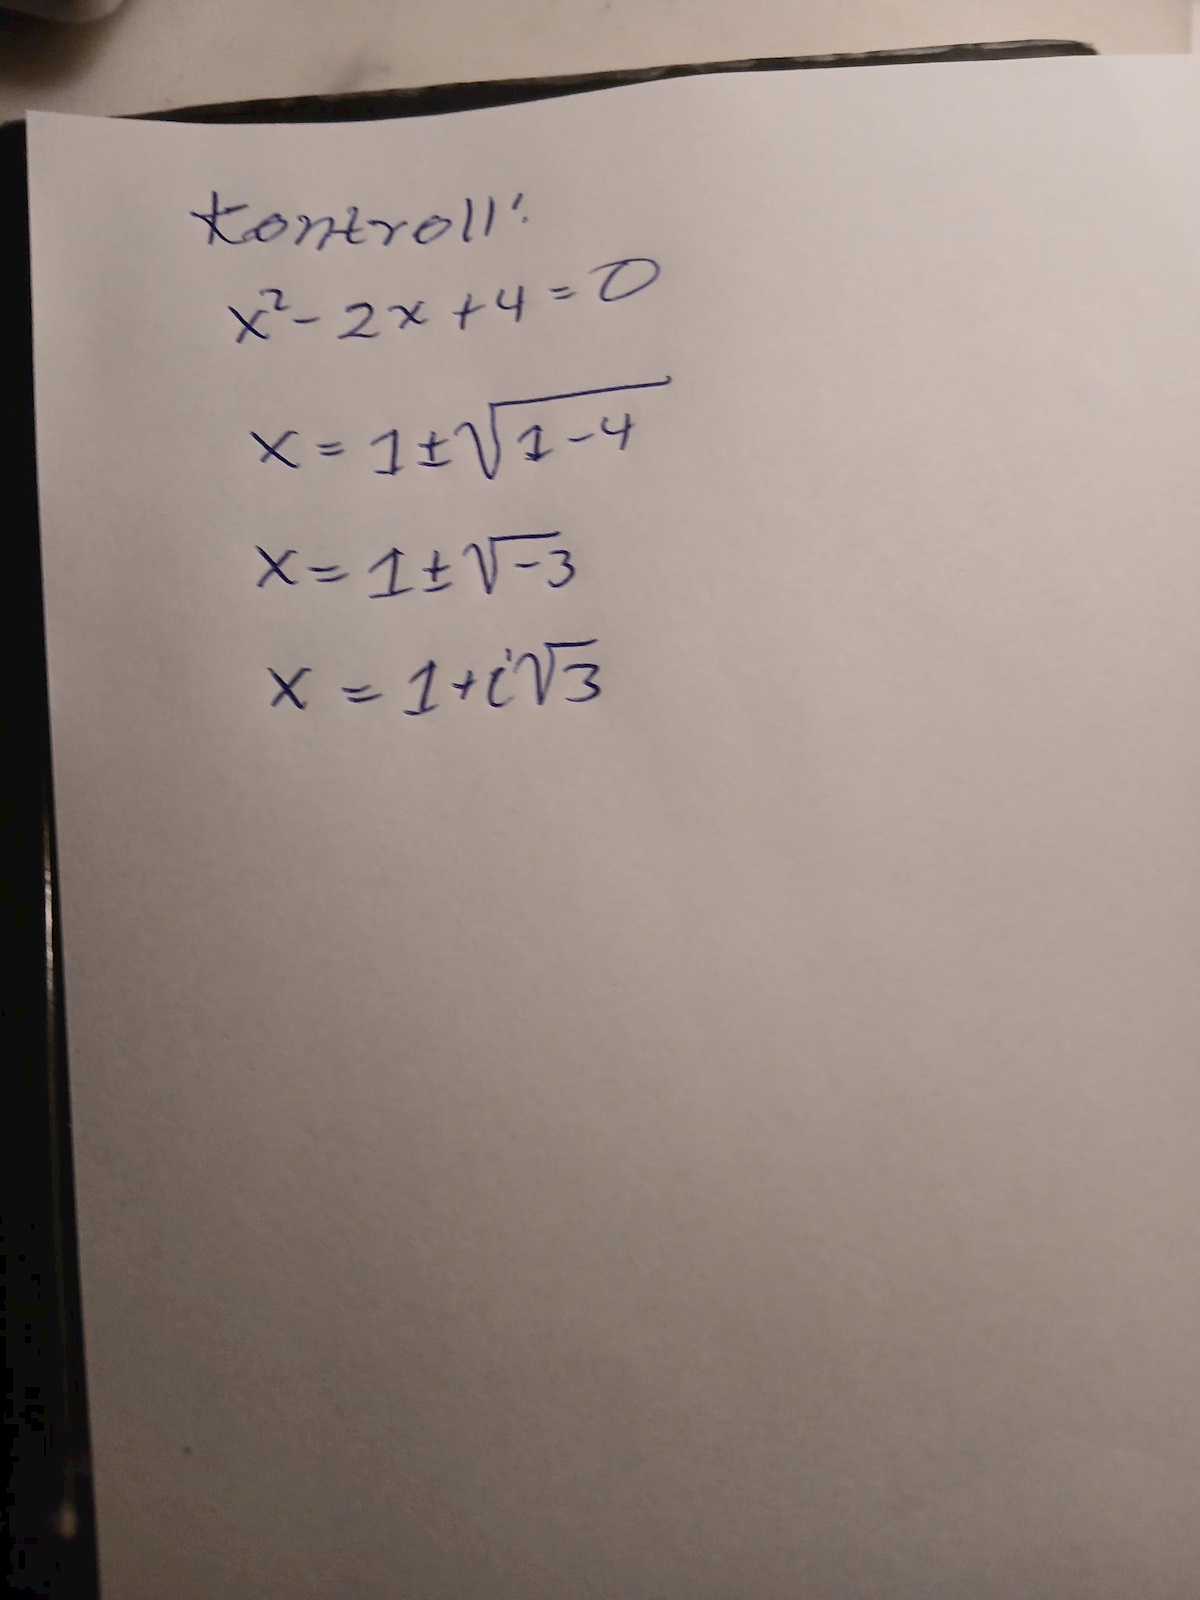 Kontroll:
x² - 2x + 4 = 0
x = 1 ± √(1 - 4)
x = 1 ± √-3
x = 1 + i√3